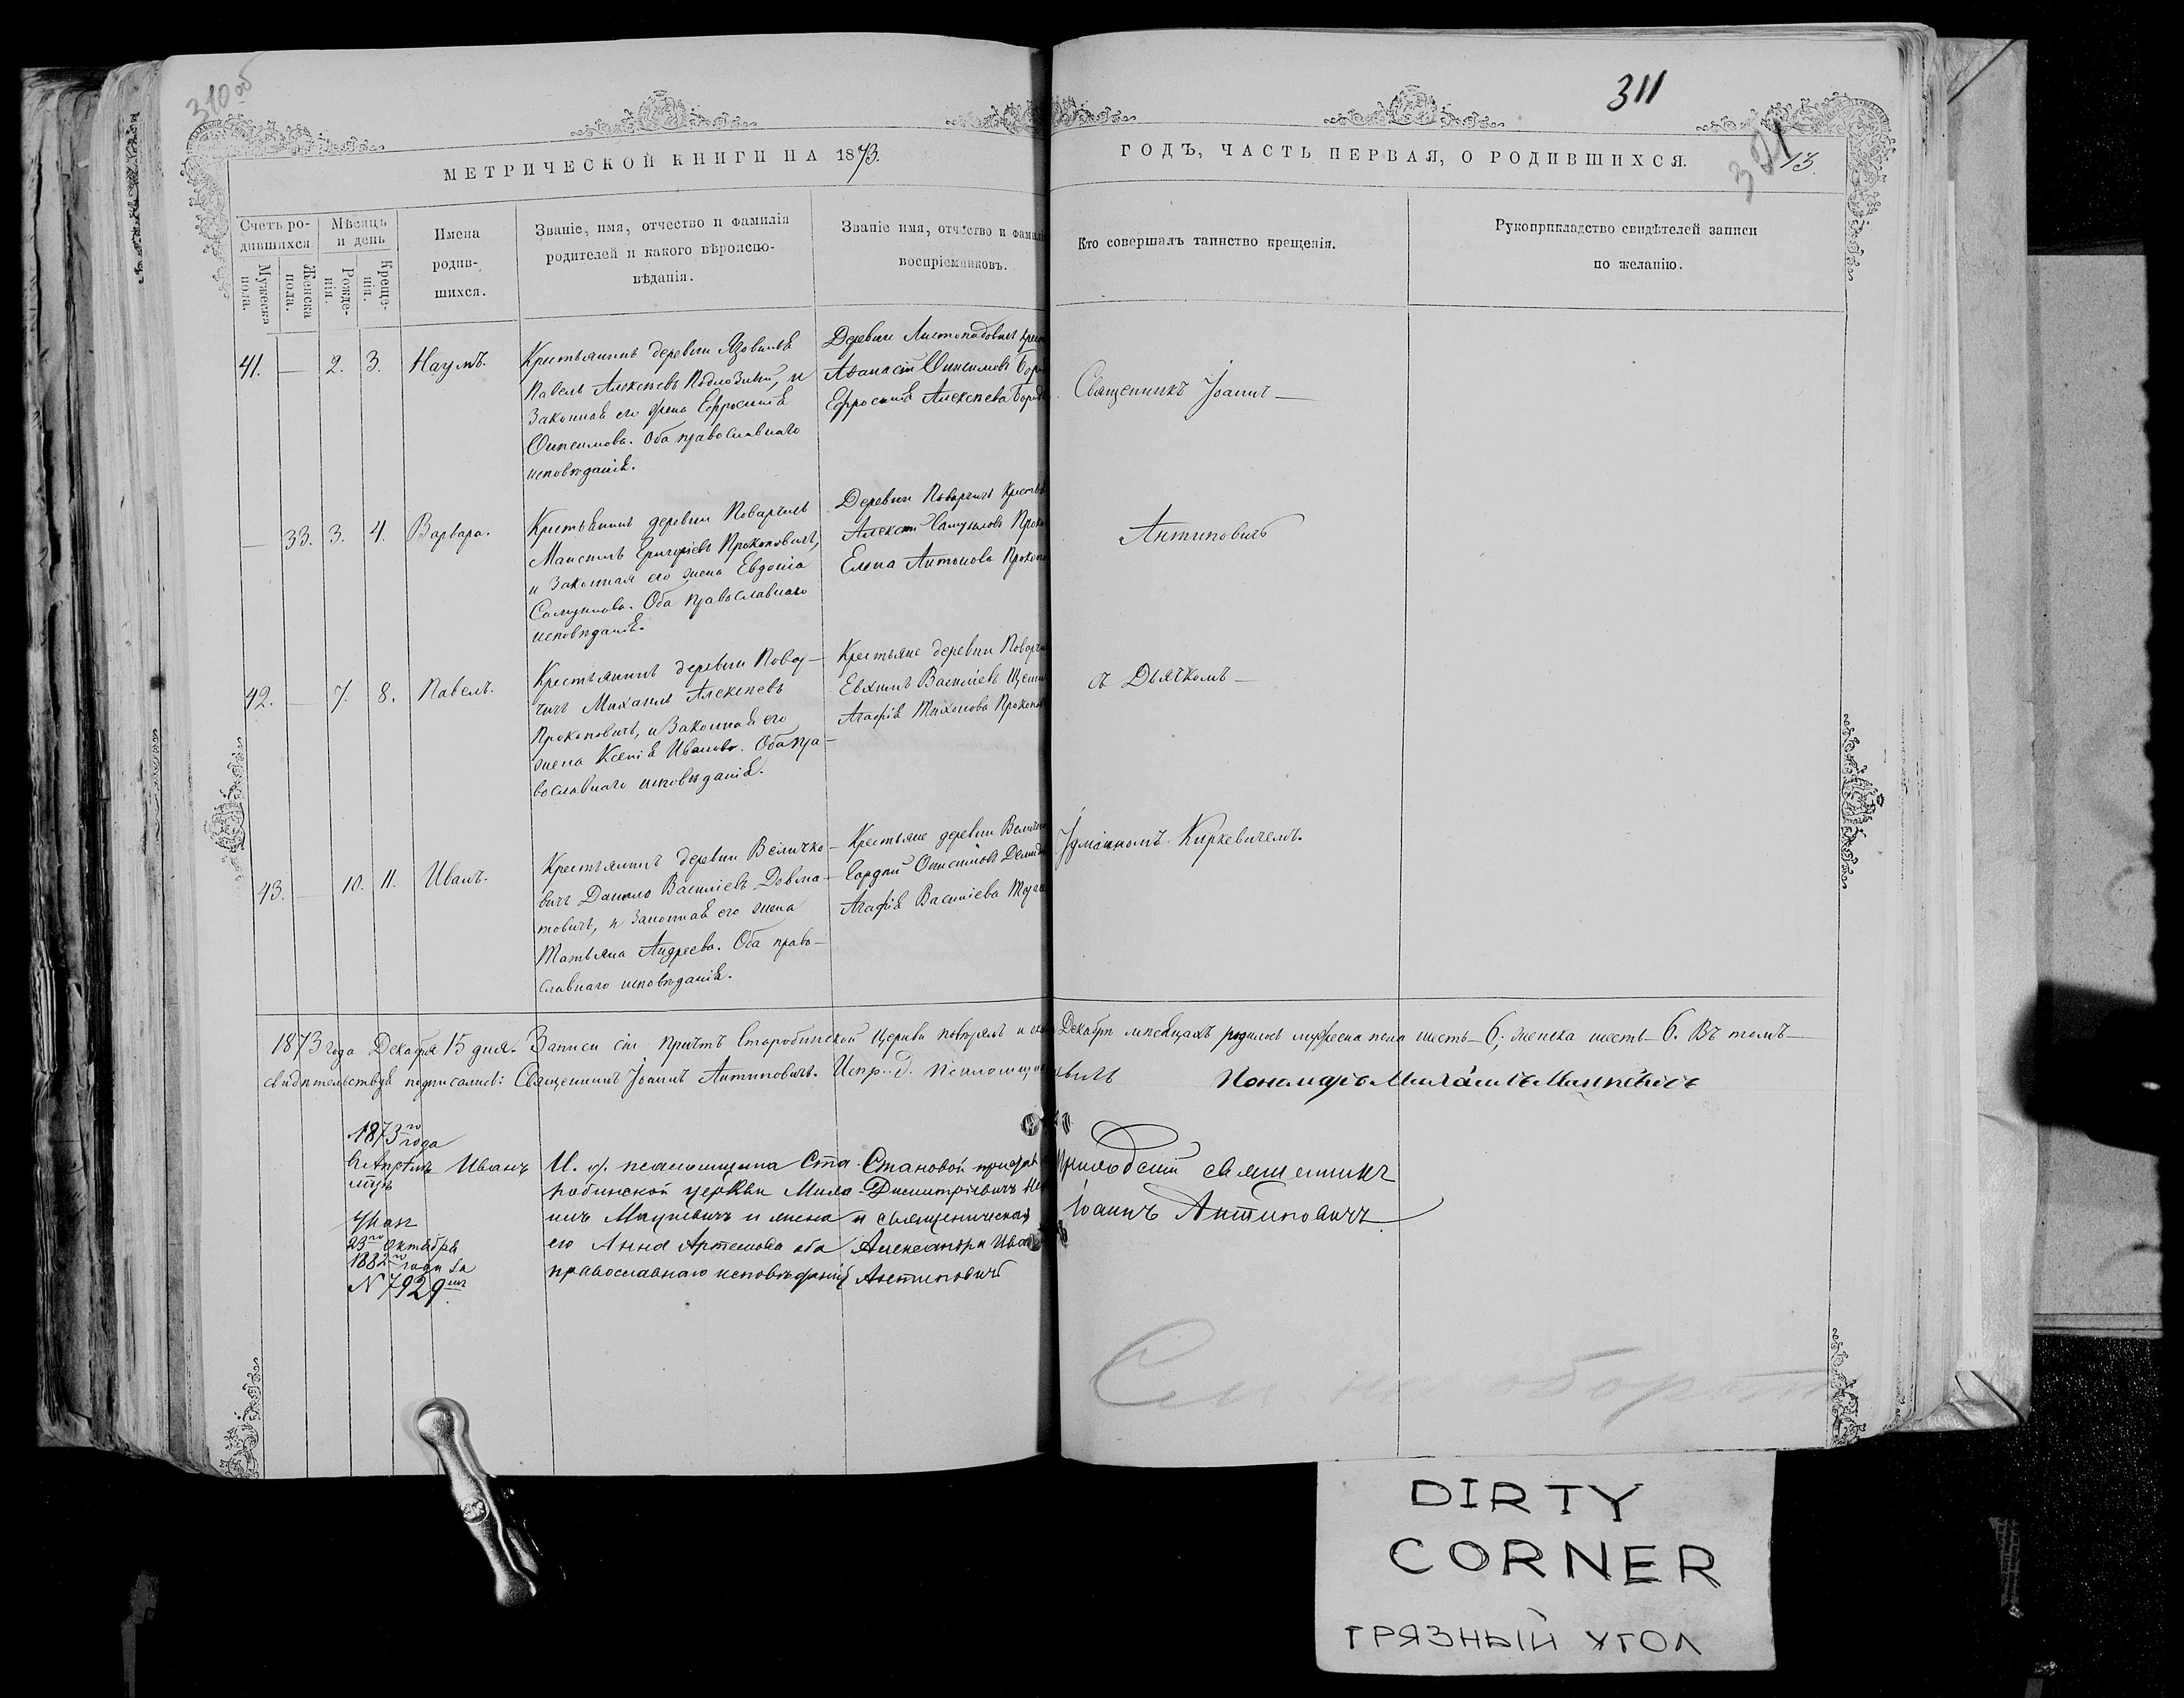 310 об
311
МЕТРИЧЕСКОЙ КНИГИ НА 1873.
ГОДЪ, ЧАСТЬ ПЕРВАЯ, О РОДИВШИХСЯ.
301
13.
Счетъ родившихся
Мужеска пола.
Женска пола.
Мѣсяцъ и день
Рожденія.
Крещенія.
Имена родившихся.
Званіе, имя, отчество и фамилія
родителей и какого вѣроиспо-
вѣданія.
Званіе имя, отчество и фамилі
воспріемниковъ.
Кто совершалъ таинство крещенія.
Рукоприкладство свидѣтелей записи
по желанію.
41. — 2. 3. Наумъ.
Крестьянинъ деревни
Павелъ Алексѣевъ и
Законная его жена Ефросинія
Онисимова. Оба православнаго
исповѣданія.
Деревни Листопадовичъ крест
Аѳанасій Онисимовъ
Ефросинія Алексѣева
Священникъ Іоаннъ —
— 33. 3. 4. Варвара.
Крестьянинъ деревни Поварчичъ
Григоріевъ Прокоповичъ,
и Законная его жена Евдокія
Самуилова. Оба православнаго
исповѣданія.
Деревни Поварчичъ Крестья
Алексѣй Самуиловъ Проко
Елена Антонова Прокопо
Антиповичъ
42. — 7. 8. Павелъ.
Крестьянинъ деревни Повар-
чичъ Михаилъ Алексѣевъ
Прокоповичъ, и Законная его
жена Ксенія Иванова. Оба пра-
вославнаго исповѣданія.
Крестьяне деревни Поварчи
Евхимъ Василіевъ
Агафія Тихонова Прокопов
съ Дьячкомъ —
43. — 10. 11. Иванъ.
Крестьянинъ деревни Величко-
вичъ Данило Василіевъ Довна-
товичъ, и Законная его жена
Татьяна Андреева. Оба право-
славнаго исповѣданія.
Крестьяне деревни Величко
Агафія Василіева
Киркевичемъ.
1873 года Декабря 15 дня. Записи сіи причтъ Старобинской Церкви повѣрялъ и
Декабрѣ мѣсяцахъ родилось мужеска пола шесть — 6, женска шесть — 6. Въ томъ —
свидѣтельствуя подписались: Священникъ Іоаннъ Антиповичъ. Испр. д. Псаломщи
Пономарь Михаилъ Мацкевичъ
1873го года
Иванъ
Указ
23го октября
1882го года за
N 7929мъ
И. д. псаломщика Ста-
робинской церкви Миха-
илъ Мацкевичъ и жена
его Анна Артемова оба
православнаго исповѣданія
Становой
Димитріевичъ
и священническая
Александра Ива
Антиповичъ
Приходскій священникъ
Іоаннъ Антиповичъ
См на оборотѣ
DIRTY
CORNER
ГРЯЗНЫЙ УГОЛ